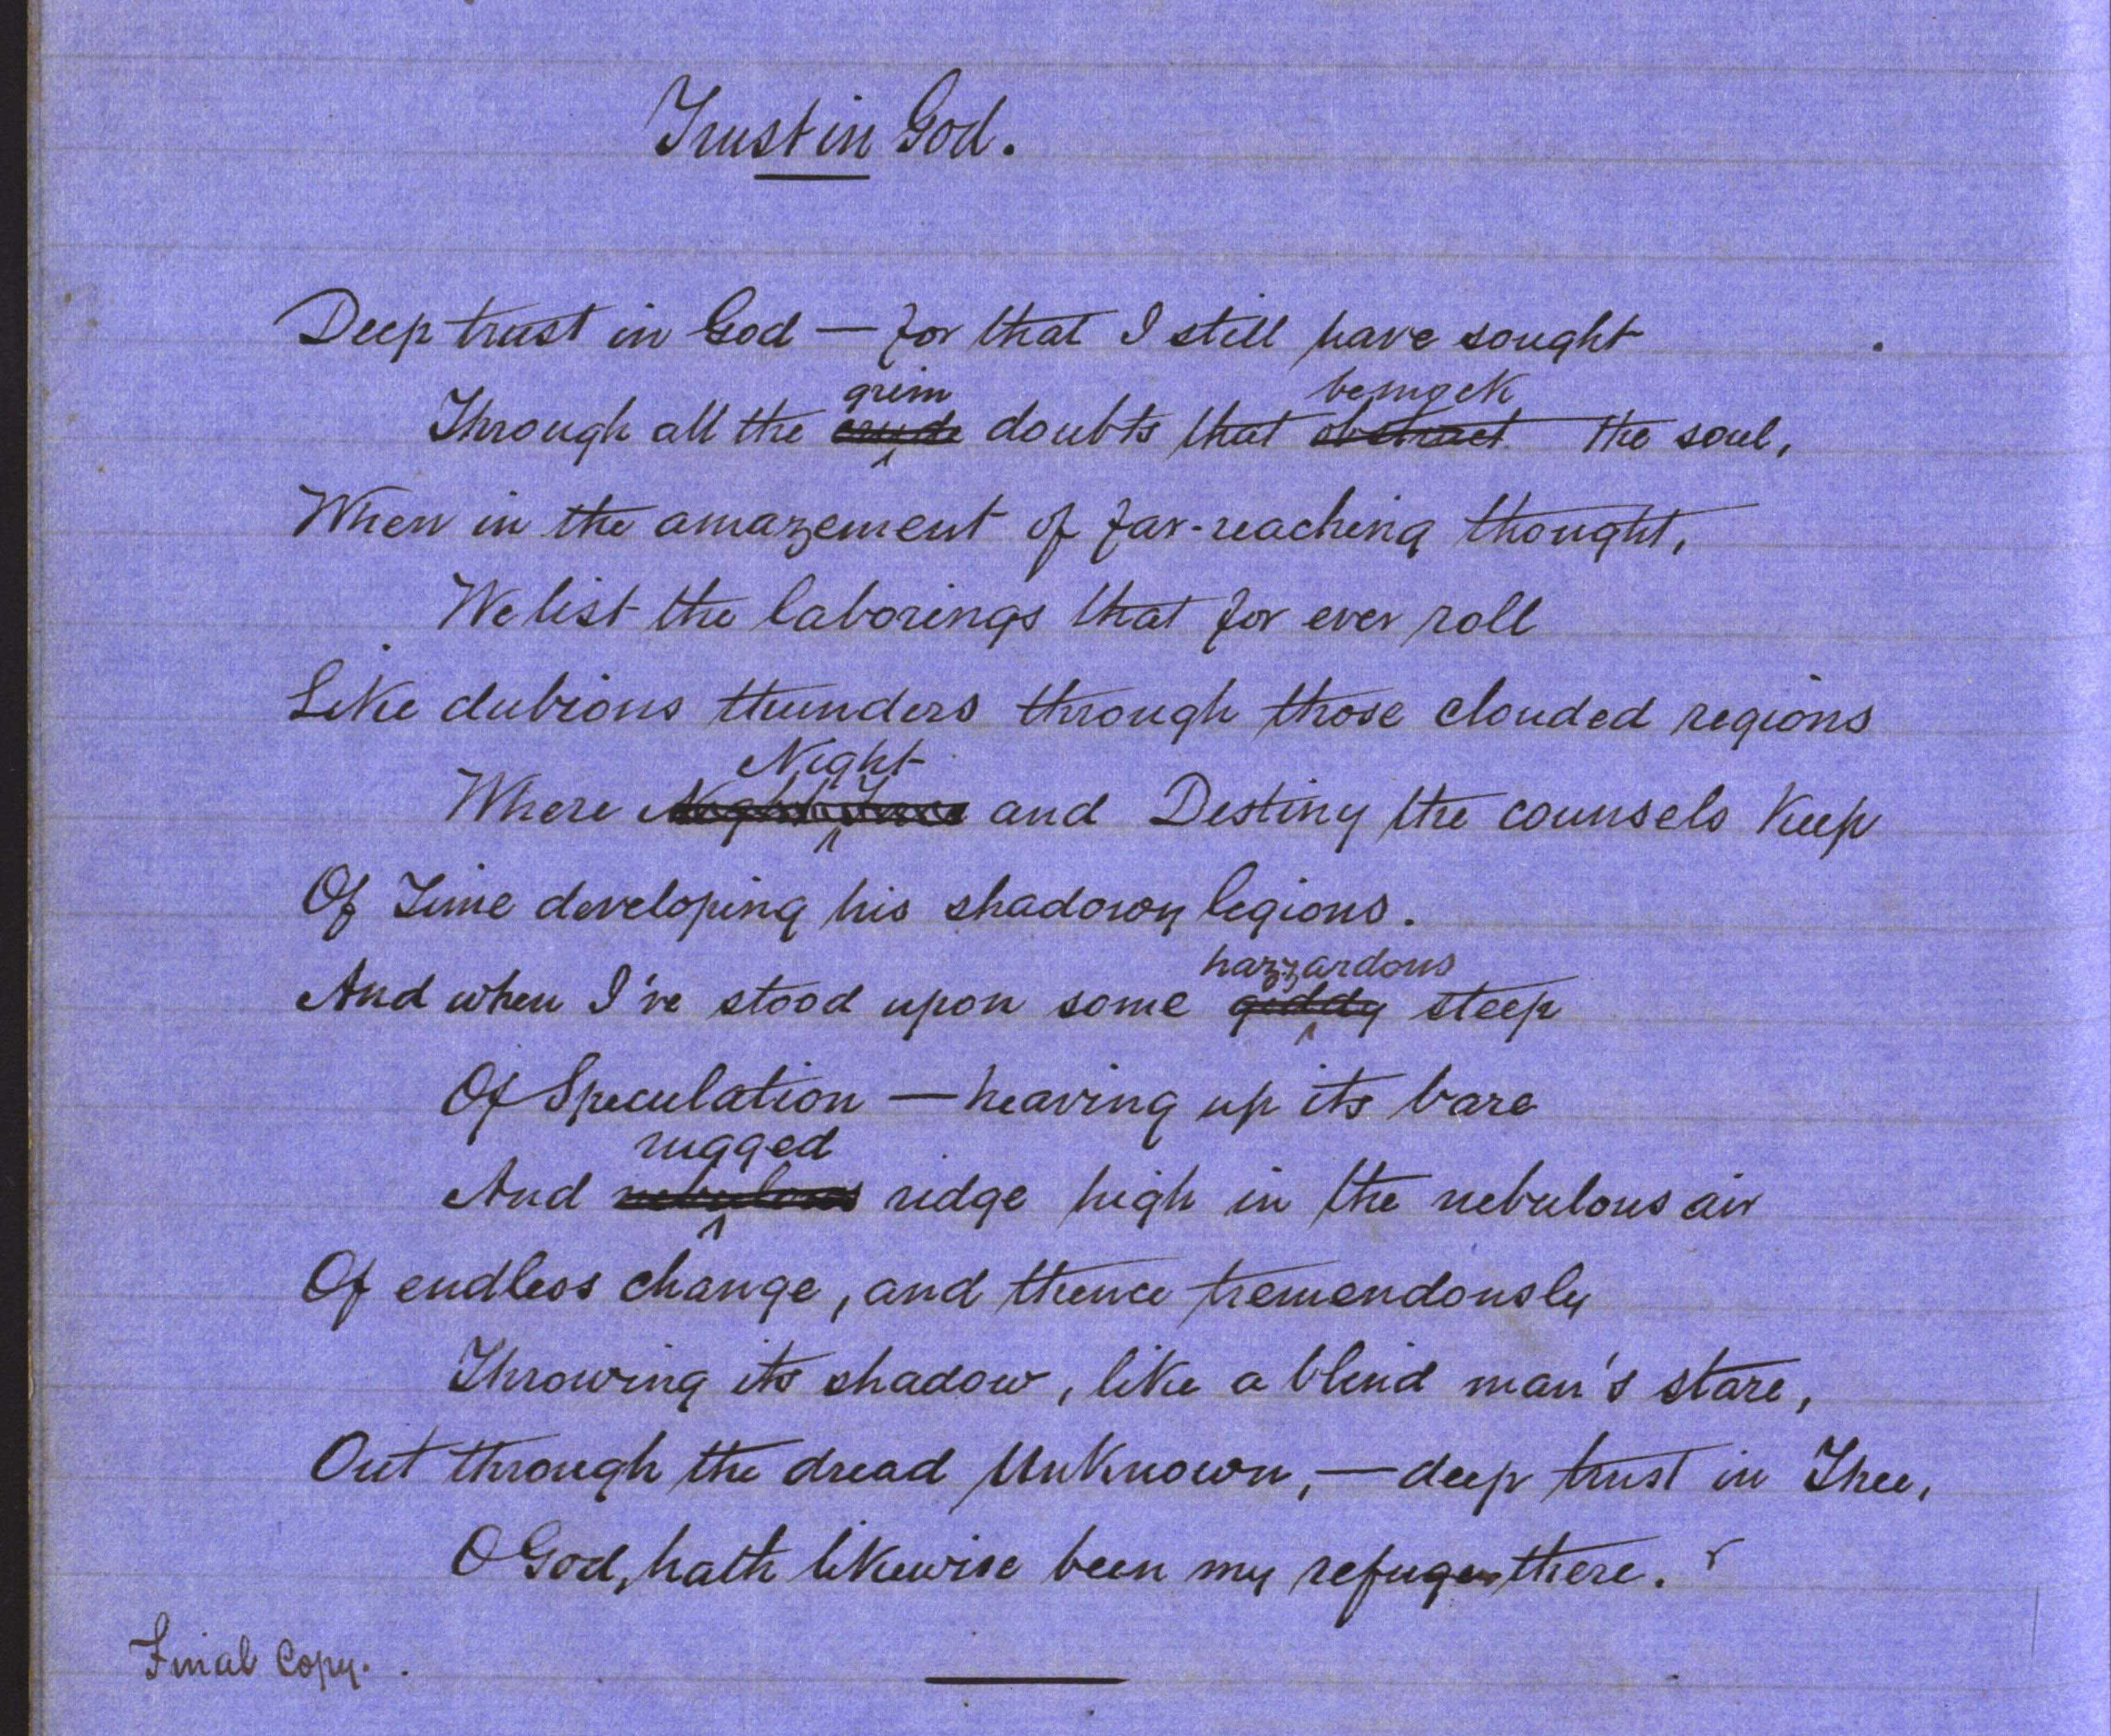 Trust in God.
Deep trust in God — for that I still have sought
grim bemock
Through all the crude doubts that obstruct the soul,
When in the amazement of far-reaching thought,
We list the laborings that for ever roll
Like dubious thunders through those clouded regions
Night
Where and Destiny the counsels keep
Of Time developing his shadowy legions.
hazzardous
And when I've stood upon some giddy steep
Of Speculation — heaving up its bare
rugged
And nebulous ridge high in the nebulous air
Of endless change, and thence tremendously
Throwing its shadow, like a blind man's stare,
Out through the dread Unknown, — deep trust in Thee,
O God, hath likewise been my refuge there.
Final Copy.